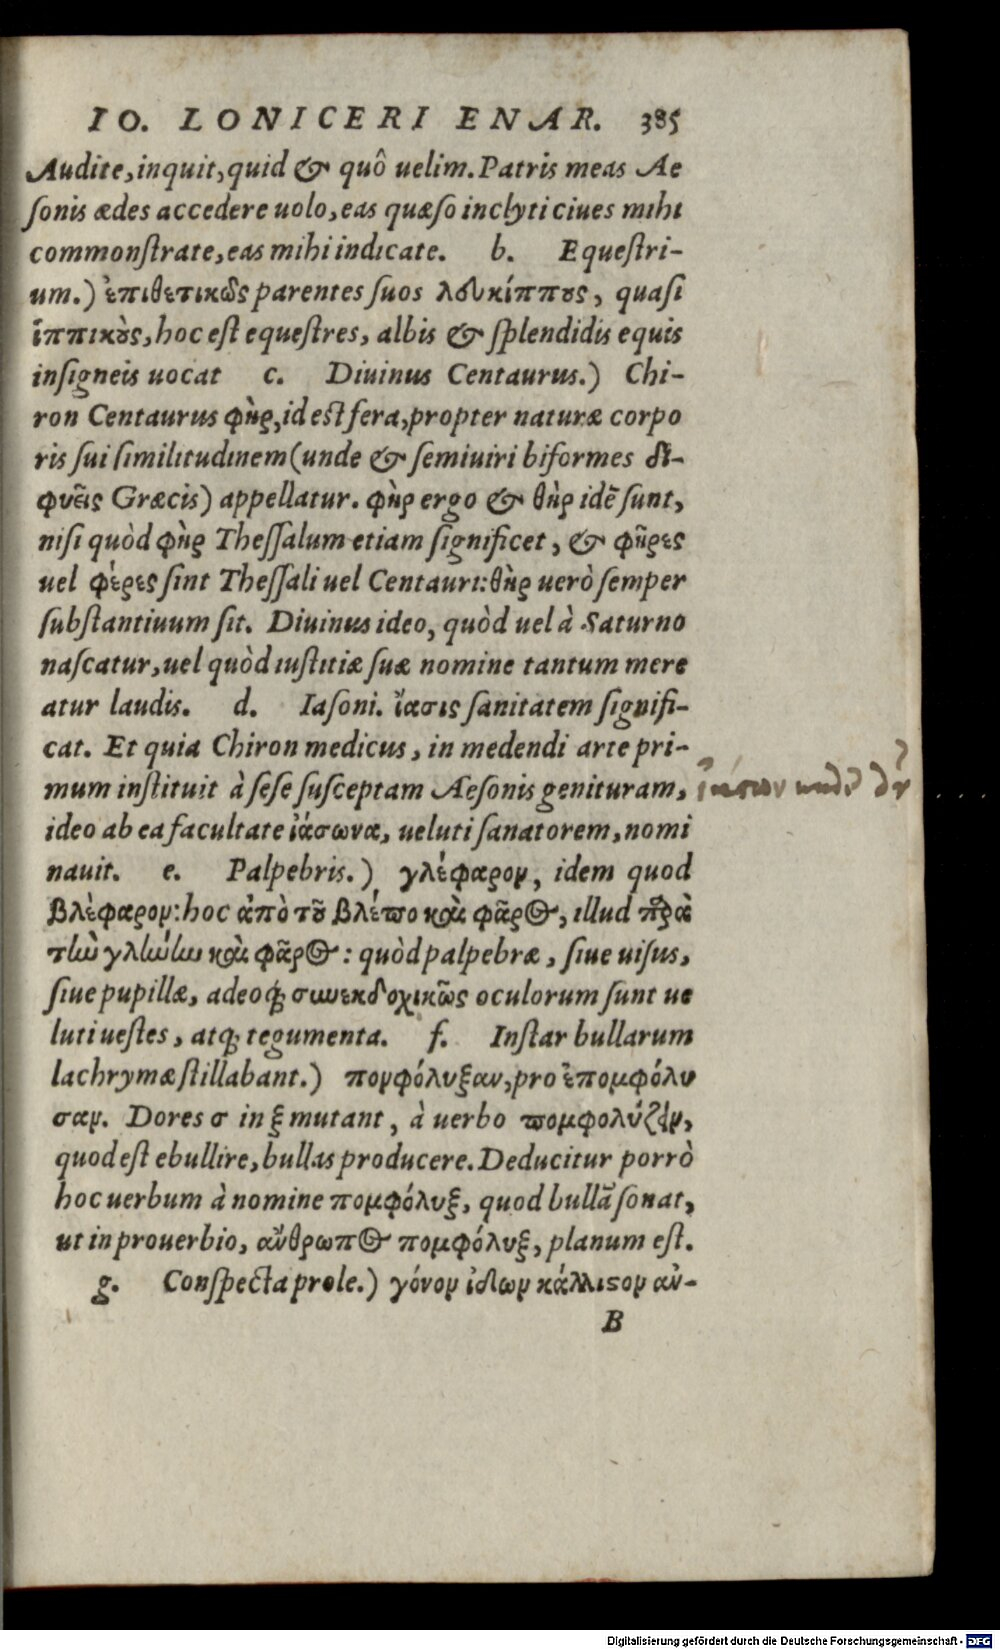 IO. LONICERI ENAR. 385
Audite, inquit, quid & quô uelim. Patris meas Ae
ſonis ædes accedere uolo, eas quæſo inclyti ciues mihi
commonſtrate, eas mihi indicate. b. Equeſtri-
um.) ἐπιθετικῶς parentes ſuos λευκίππους, quaſi
ἱππικοὺς, hoc eſt equeſtres, albis & ſplendidis equis
inſigneis uocat c. Diuinus Centaurus.) Chi-
ron Centaurus φὴρ, id eſt fera, propter naturæ corpo
ris ſui ſimilitudinem (unde & ſemiuiri biformes δι-
φυεῖς Græcis) appellatur. φὴρ ergo & θὴρ idẽ ſunt,
niſi quòd φὴρ Theſſalum etiam ſignificet, & φῆρες
uel φέρες ſint Theſſali uel Centauri: θὴρ uerò ſemper
ſubſtantiuum ſit. Diuinus ideo, quòd uel à Saturno
naſcatur, uel quòd iuſtitiæ ſuæ nomine tantum mere
atur laudis. d. Iaſoni. ἴασις ſanitatem ſignifi-
cat. Et quia Chiron medicus, in medendi arte pri-
mum inſtituit à ſeſe ſuſceptam Aeſonis genituram,
ideo ab ea facultate ἰάσωνα, ueluti ſanatorem, nomi
nauit. e. Palpebris.) γλέφαρον, idem quod
βλέφαρον: hoc ἀπὸ τοῦ βλέπω καὶ φᾶρος, illud παρὰ
τὴν γλήνην καὶ φᾶρος: quòd palpebræ, ſiue uiſus,
ſiue pupillæ, adeoq́; συνεκδοχικῶς oculorum ſunt ue
luti ueſtes, atq; tegumenta. f. Inſtar bullarum
lachrymæ ſtillabant.) πομφόλυξαν, pro ἐπομφόλυ
σαν. Dores σ in ξ mutant, à uerbo πομφολύζειν,
quod eſt ebullire, bullas producere. Deducitur porrò
hoc uerbum à nomine πομφόλυξ, quod bullã ſonat,
ut in prouerbio, ἄνθρωπος πομφόλυξ, planum eſt.
g. Conſpecta prole.) γόνον ἰδὼν κάλλιςον ἀν-
B
Digitalisierung gefördert durch die Deutsche Forschungsgemeinschaft - DFG